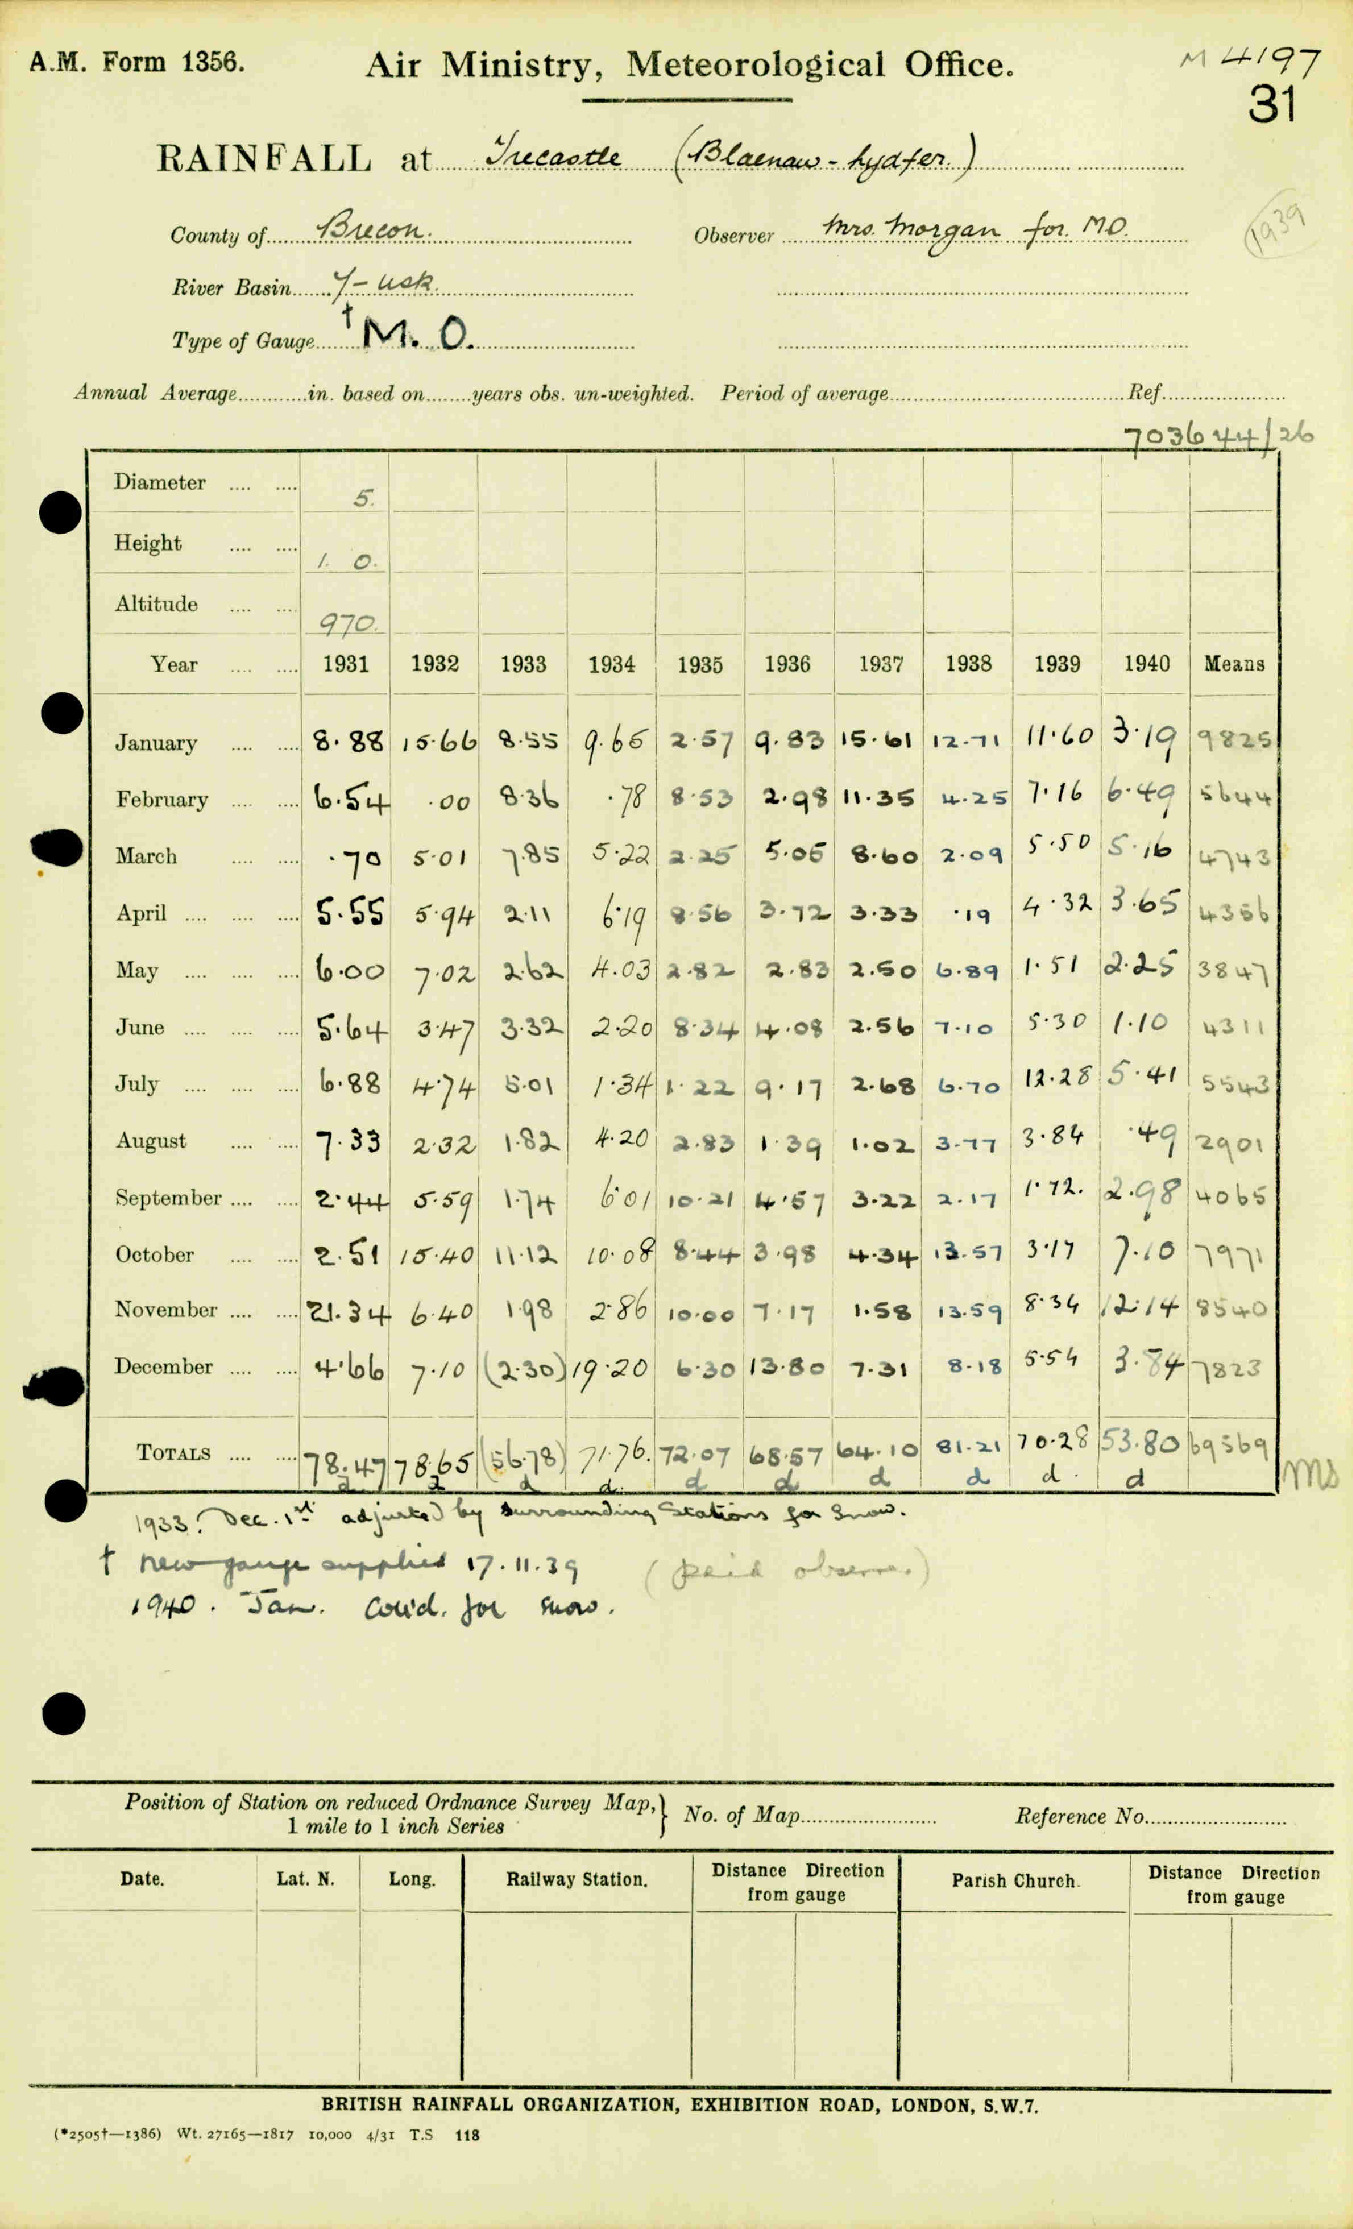 A.M. Form 1356. Air Ministry, Meteorological Office. M 4197
31
RAINFALL at Trecastle (Blaenau-hydfer.)
1939
County of Brecon. Observer Mrs. Morgan for M.O.
River Basin Y-Usk.
Type of Gauge † M. O.
Annual Average in. based on years obs. un-weighted. Period of average Ref.
703644/26
Diameter 5.
Height 1. 0.
Altitude 970.
Year 1931 1932 1933 1934 1935 1936 1937 1938 1939 1940 Means
January 8.88 15.66 8.55 9.65 2.57 9.83 15.61 12.71 11.60 3.19 9825
February 6.54 .00 8.36 .78 8.53 2.98 11.35 4.25 7.16 6.49 5644
March .70 5.01 7.85 5.22 2.25 5.05 8.60 2.09 5.50 5.16 4743
April 5.55 5.94 2.11 6.19 8.56 3.72 3.33 .19 4.32 3.65 4356
May 6.00 7.02 2.62 4.03 2.82 2.83 2.50 6.89 1.51 2.25 3847
June 5.64 3.47 3.32 2.20 8.34 4.08 2.56 7.10 5.30 1.10 4311
July 6.88 4.74 5.01 1.34 1.22 9.17 2.68 6.70 12.28 5.41 5543
August 7.33 2.32 1.82 4.20 2.83 1.39 1.02 3.77 3.84 .49 2901
September 2.44 5.59 1.74 6.01 10.21 4.57 3.22 2.17 1.72. 2.98 4065
October 2.51 15.40 11.12 10.08 8.44 3.98 4.34 13.57 3.17 7.10 7971
November 21.34 6.40 1.98 2.86 10.00 7.17 1.58 13.59 8.34 12.14 8540
December 4.66 7.10 (2.30) 19.20 6.30 13.80 7.31 8.18 5.54 3.84 7823
TOTALS 78.47 78.65 (56.78) 71.76. 72.07 68.57 64.10 81.21 70.28 53.80 69569
d d d d d d d d d d Ms
1933. Dec. 1st adjusted by surrounding Stations for Snow.
† New gauge supplied 17.11.39 (paid observer)
1940. Jan. Corr'd. for snow.
Position of Station on reduced Ordnance Survey Map,
1 mile to 1 inch Series } No. of Map Reference No.
Date. Lat. N. Long. Railway Station. Distance Direction Parish Church. Distance Direction
from gauge from gauge
BRITISH RAINFALL ORGANIZATION, EXHIBITION ROAD, LONDON, S.W.7.
(*2505†—1386) Wt. 27165—1817 10,000 4/31 T.S 118